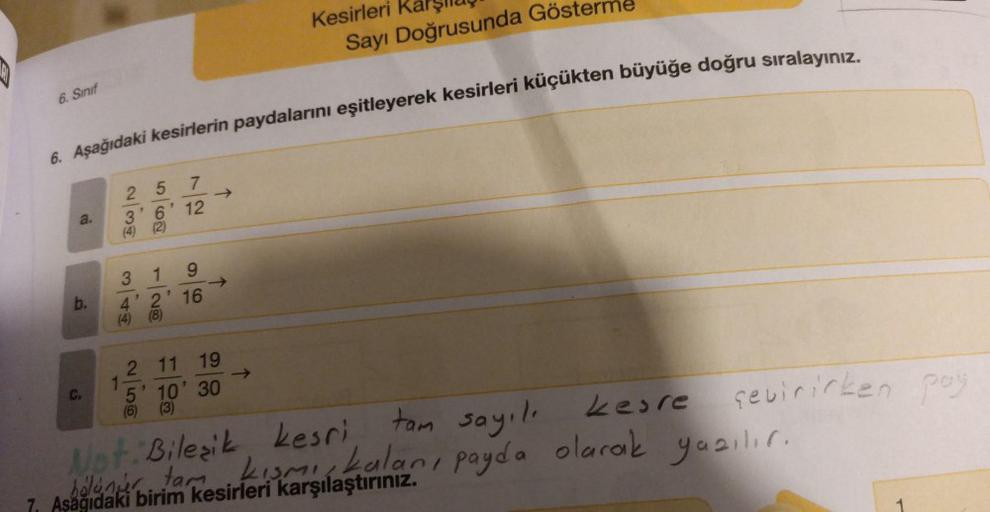 Kesirleri Karşılaş
Sayı Doğrusunda Gösterme
6. Sınıf
6. Aşağıdaki kesirlerin paydalarını eşitleyerek kesirleri küçükten büyüğe doğru sıralayınız.
a. 2/3 (4), 5/6 (2), 7/12 →
b. 3/4 (4), 1/2 (8), 9/16 →
c. 1 2/5 (6), 11/10 (3), 19/30 →
Not: Bileşik kesri tam sayılı kesre çevirirken pay
bölünür tam kısmı, kalanı payda olarak yazılır.
7. Aşağıdaki birim kesirleri karşılaştırınız.
1